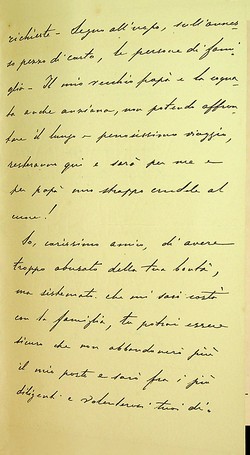 richieste - Segno all'uopo, sull'annes-
so pezzo di carta, le persone di fami-
glia - Il mio vecchio papà e la cogna-
ta anche anziana, non potendo affron-
tare il lungo e penosissimo viaggio,
resteranno qui e sarà per me e
per papà uno strappo crudele al
cuore!
So, carissimo amico, di avere
troppo abusato della tua bontà,
ma sistemato che mi sarò costà
con la famiglia, tu potrai essere
sicuro che non abbandonerò più
il mio posto e sarò fra i più
diligenti e volenterosi tuoi di-